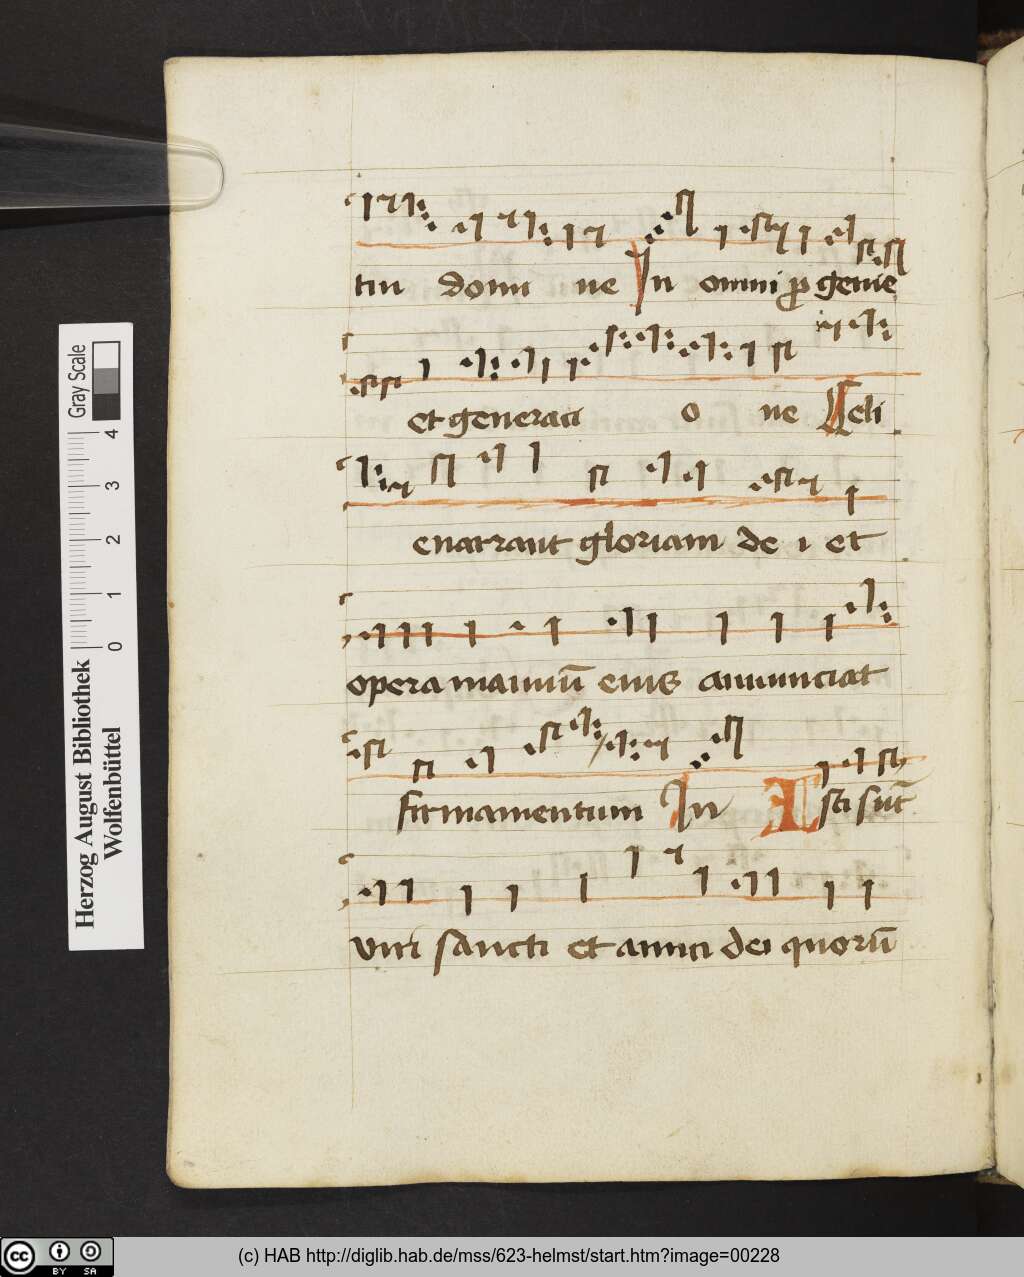 tui domi ne In omni ꝓ genie
et generaci o ne Celi
enarrant gloriam de i et
opera manuū eius annunciat
firmamentum In Isti sūt
viri sancti et amici dei quorū
Gray Scale
0 1 2 3 4
Herzog August Bibliothek
Wolfenbüttel
cc BY SA
(c) HAB http://diglib.hab.de/mss/623-helmst/start.htm?image=00228